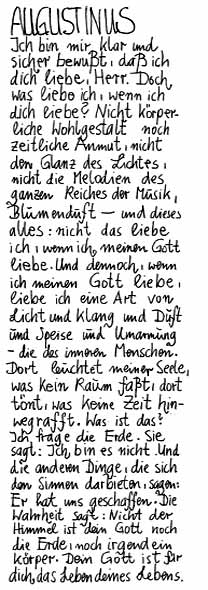 AUGUSTINUS
Ich bin mir klar und
sicher bewußt, daß ich
dich liebe, Herr. Doch
was liebe ich, wenn ich
dich liebe? Nicht körper-
liche Wohlgestalt noch
zeitliche Anmut, nicht
den Glanz des Lichtes,
nicht die Melodien des
ganzen Reiches der Musik,
Blumenduft – und dieses
alles: nicht das liebe
ich, wenn ich meinen Gott
liebe. Und dennoch, wenn
ich meinen Gott liebe,
liebe ich eine Art von
Licht und Klang und Duft
und Speise und Umarmung
– die des inneren Menschen.
Dort leuchtet meiner Seele,
was kein Raum faßt, dort
tönt, was keine Zeit hin-
wegrafft. Was ist das?
Ich frage die Erde. Sie
sagt: Ich bin es nicht. Und
die anderen Dinge, die sich
den Sinnen darbieten, sagen:
Er hat uns geschaffen. Die
Wahrheit sagt: Nicht der
Himmel ist dein Gott noch
die Erde, noch irgend ein
Körper. Dein Gott ist für
dich, das Leben deines Lebens.